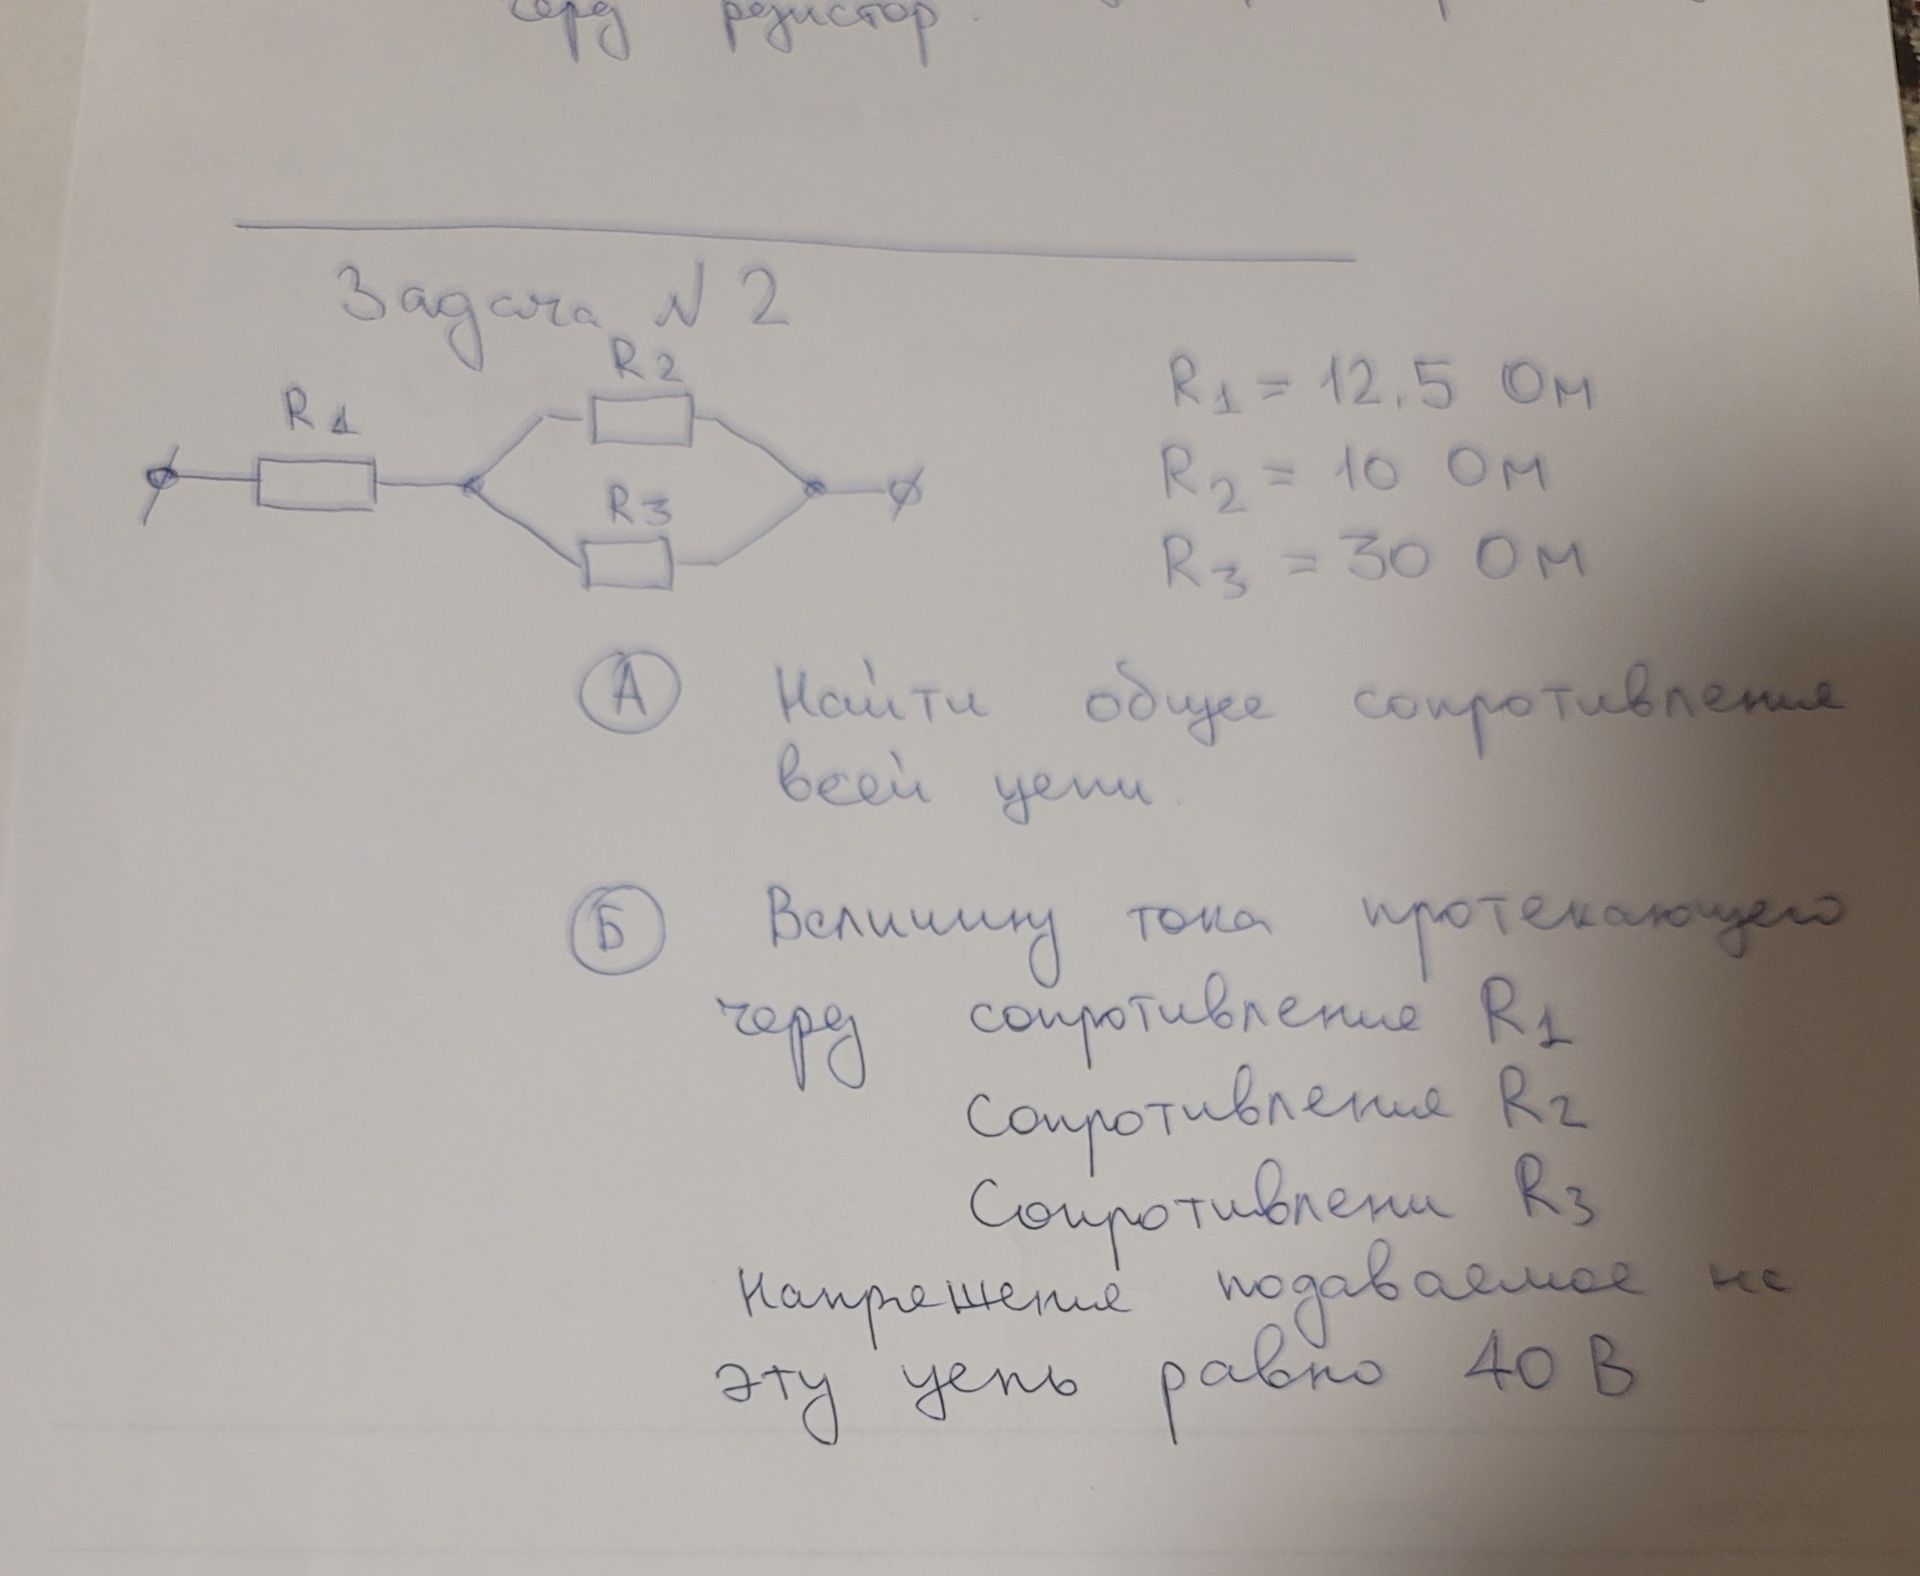 через резистор.
Задача N 2
R1
R2
R3
R1 = 12.5 Ом
R2 = 10 Ом
R3 = 30 Ом
А Найти общее сопротивление
всей цепи.
Б Величину тока протекающего
через сопротивление R1
Сопротивление R2
Сопротивлени R3
Напрешение подаваемое на
эту цепь равно 40 В